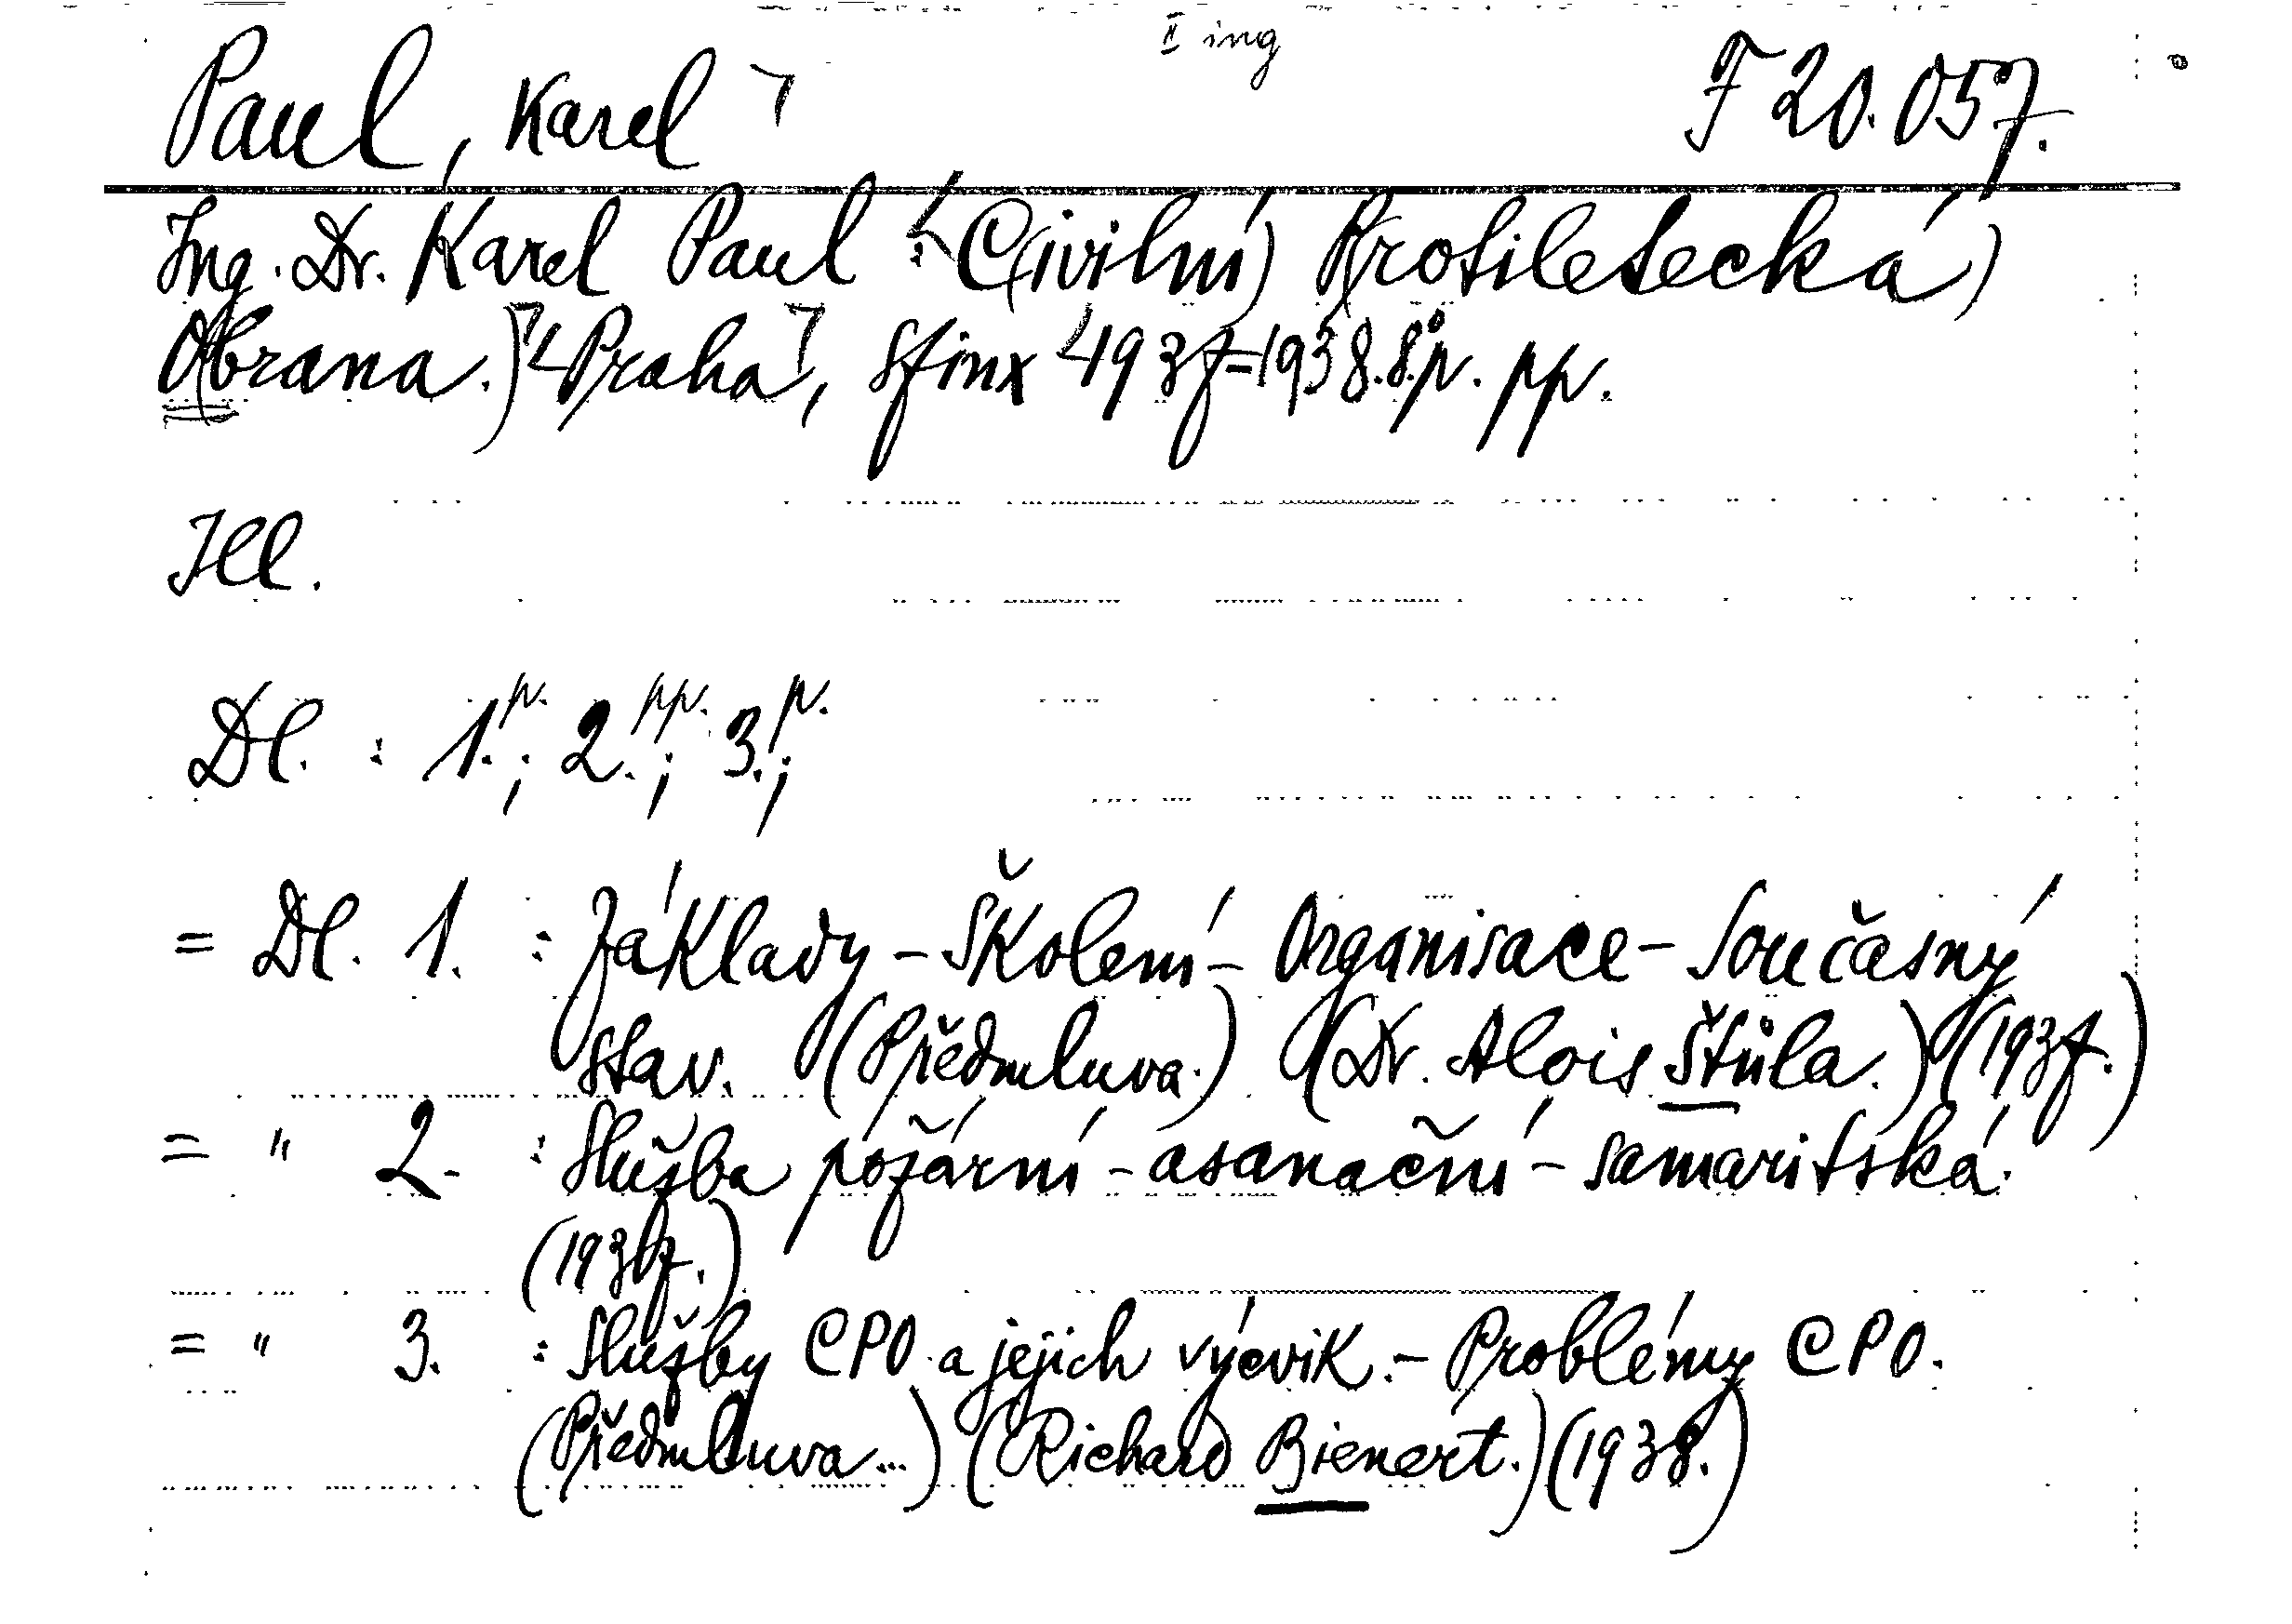 II ing
Paul, Karel F 20.057.
Ing. Dr. Karel Paul: C(ivilní) P(rotiletecká)
O(brana.) Praha, Sfinx 1937-1938. 8° p. pp.
Ill.
Dl. : 1.p.; 2.pp.; 3.p.;
= Dl. 1. : Základy - Školení - Organisace - Současný
stav. (Předmluva.) (Dr. Alois Štůla.) (1937.)
= " 2. : Služba požární - asanační - samaritská.
(1937.)
= " 3. : Služby CPO a jejich výcvik. - Problémy CPO.
(Předmluva...) (Richard Bienert.) (1938.)